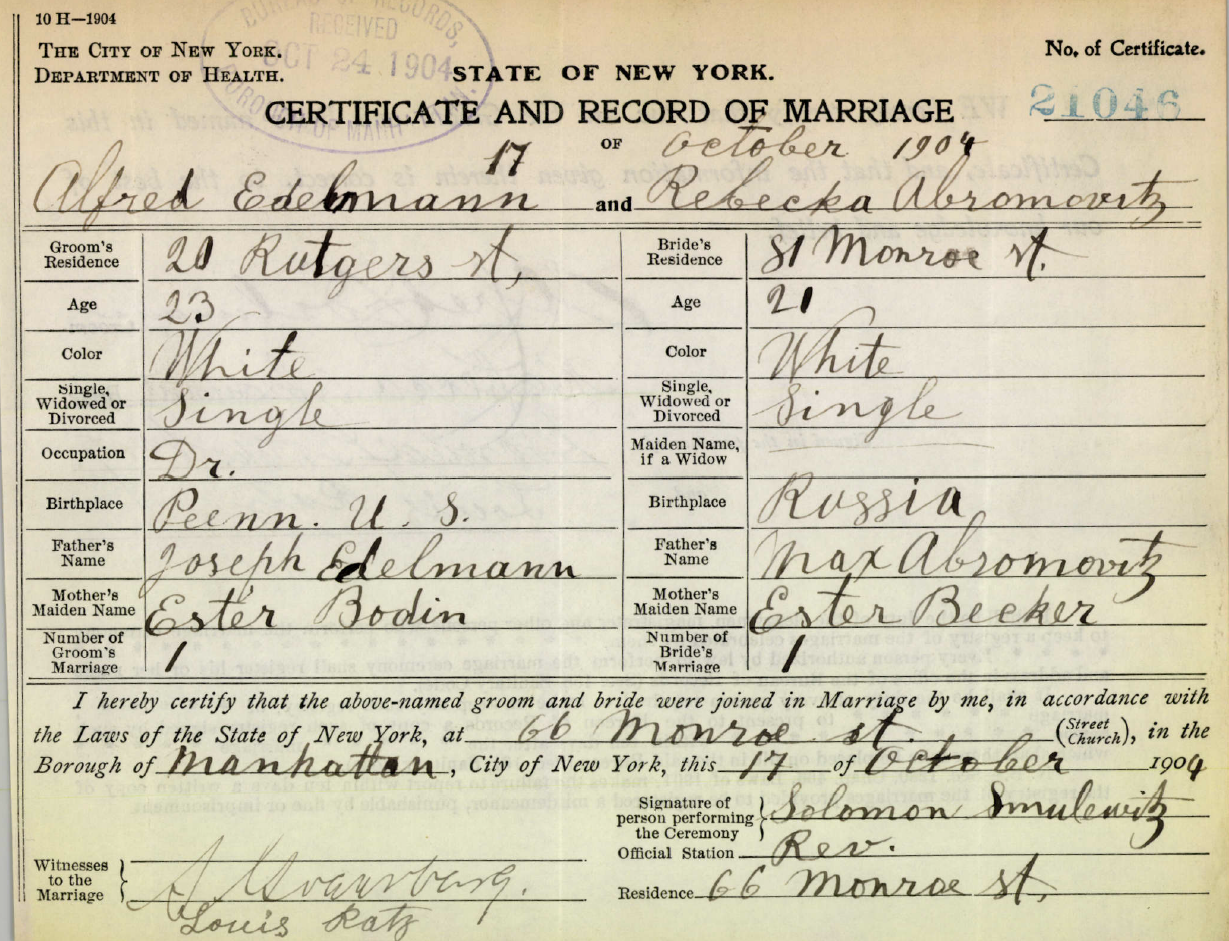 10 H—1904
BUREAU OF RECORDS,
RECEIVED
OCT 24 1904
BOROUGH OF MANH
THE CITY OF NEW YORK.
DEPARTMENT OF HEALTH.
No. of Certificate.
STATE OF NEW YORK.
CERTIFICATE AND RECORD OF MARRIAGE
21046
17 OF October 1904
Alfred Edelmann and Rebecka Abromovitz
Groom's Residence 20 Rutgers st,
Bride's Residence 81 Monroe st.
Age 23
Age 21
Color White
Color White
Single, Widowed or Divorced Single
Single, Widowed or Divorced Single
Occupation Dr.
Maiden Name, if a Widow
Birthplace Peenn. U. S.
Birthplace Russia
Father's Name Joseph Edelmann
Father's Name Max Abromovitz
Mother's Maiden Name Ester Bodin
Mother's Maiden Name Ester Becker
Number of Groom's Marriage 1
Number of Bride's Marriage 1
I hereby certify that the above-named groom and bride were joined in Marriage by me, in accordance with
the Laws of the State of New York, at 66 Monroe st (Street Church), in the
Borough of Manhattan, City of New York, this 17 of October 1904
Signature of person performing the Ceremony Solomon Smulewitz
Official Station Rev.
Witnesses to the Marriage
Louis Katz
Residence 66 Monroe st,